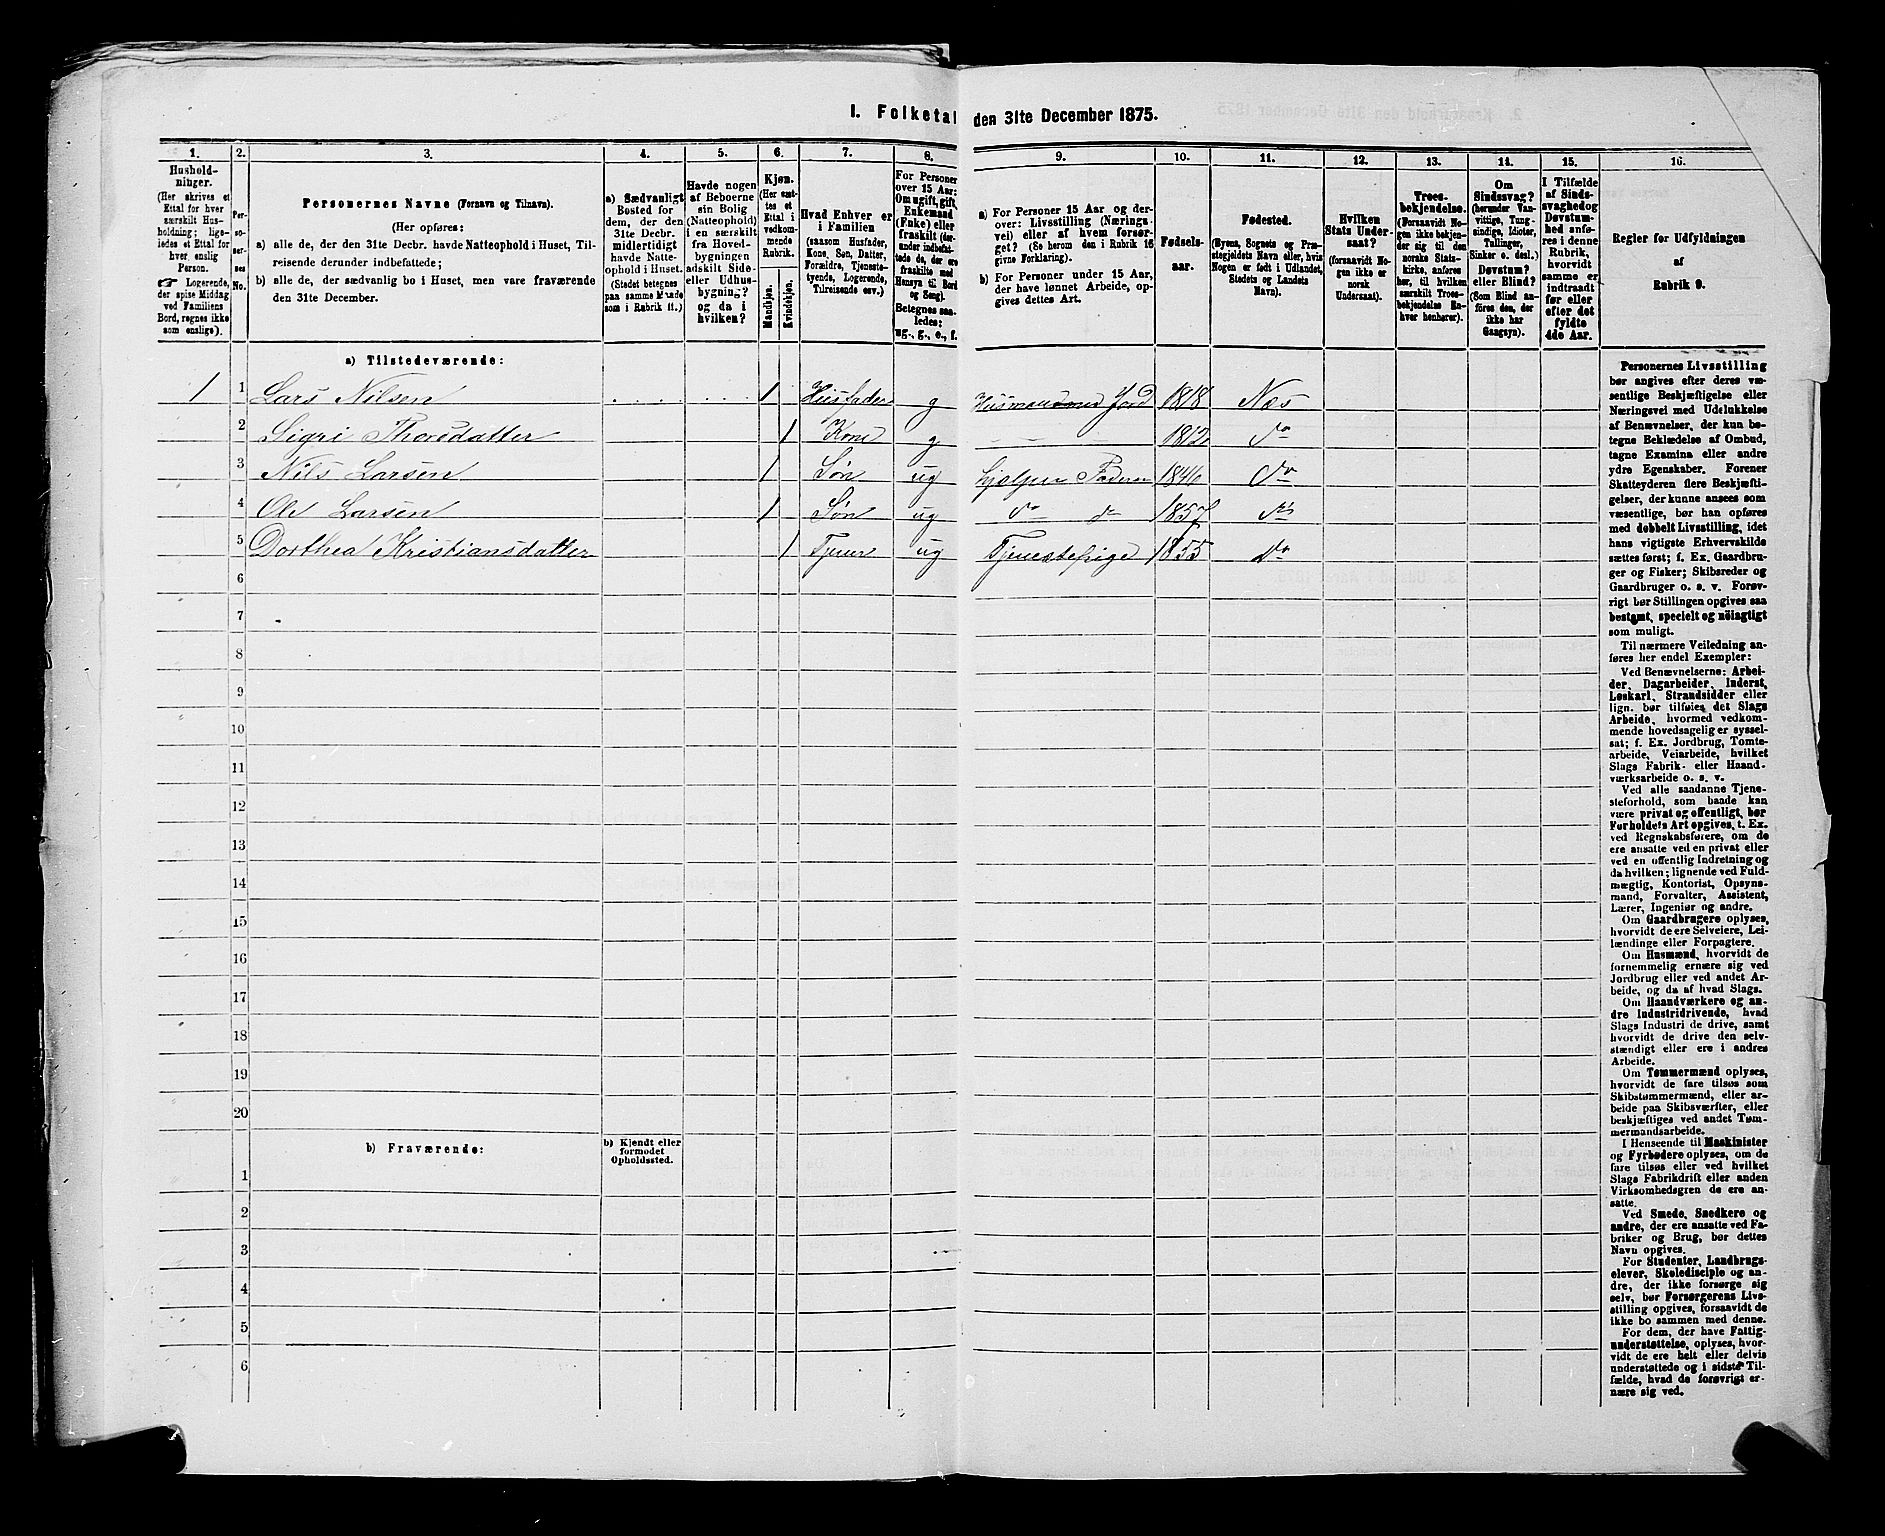 1. Folketal den 31te December 1875.
1. 2. 3. 4. 5. 6. 7. 8. 9. 10. 11. 12. 13. 14. 15. 16.
Hushold-
ninger.
(Her skrives et
Ettal for hver
særskilt Hus-
holdning; lige-
ledes et Ettal for
hver enslig
Person.
☞ Logerende,
der spise Middag
ved Familiens
Bord, regnes ikke
som enslige).
Per-
so-
ner-
nes
No.
Personernes Navne (Fornavn og Tilnavn).
(Her opføres:
a) alle de, der den 31te Decbr. havde Natteophold i Huset, Til-
reisende derunder indbefattede;
b) alle de, der sædvanlig bo i Huset, men vare fraværende
den 31te December.
a) Sædvanligt
Bosted for
dem, der den
31te Decbr.
midlertidigt
havde Natte-
ophold i Huset.
(Stedet betegnes
paa samme Maade
som i Rubrik 11.)
Havde nogen
af Beboerne
sin Bolig
(Natteophold)
i en særskilt
fra Hoved-
bygningen
adskilt Side-
eller Udhus-
bygning?
og da i
hvilken?
Kjøn.
(Her sæt-
tes et
Ettal i
vedkom-
mende
Rubrik.
Mandkjøn.
Kvindekjøn.
Hvad Enhver er
i Familien
(saasom Husfader,
Kone, Søn, Datter,
Forældre, Tjeneste-
tyende, Logerende,
Tilreisende osv.)
For Personer
over 15 Aar:
Om ugift, gift,
Enkemand
(Enke) eller
fraskilt (der-
under indbefat-
tede de, der ere
fraskilte med
Hensyn til Bord
og Seng).
Betegnes saa-
ledes:
ug., g., e., f.
a) For Personer 15 Aar og der-
over: Livsstilling (Nærings-
vei) eller af hvem forsør-
get? (Se herom den i Rubrik 16
givne Forklaring).
b) For Personer under 15 Aar,
der have lønnet Arbeide, op-
gives dettes Art.
Fødsels-
aar.
Fødested.
(Byens, Sognets og Præ-
stegjeldets Navn eller, hvis
Nogen er født i Udlandet,
Stedets og Landets
Navn).
Hvilken
Stats Under-
saat?
(forsaavidt No-
gen ikke er
norsk
Undersaat).
Troes-
bekjendelse.
(Forsaavidt No-
gen ikke bekjen-
der sig til den
norske Stats-
kirke, anføres
her, til hvilken
særskilt Troes-
bekjendelse En-
hver henhører).
Om
Sindssvag?
(herunder Van-
vittige, Tung-
sindige, Idioter,
Tullinger,
Sinker o. desl.)
Døvstum?
eller Blind?
(Som Blind an-
føres den, der
ikke har
Gangsyn).
I Tilfælde
af Sinds-
svaghed og
Døvstum-
hed anfø-
res i denne
Rubrik,
hvorvidt
samme er
indtraadt
før eller
efter det
fyldte
4de Aar.
Regler for Udfyldningen
af
Rubrik 9.
a) Tilstedeværende:
1 1 Lars Nilsen 1 Husfader g Husmand med Jord 1818 Næs
2 Sigri Thorsdatter 1 Kone g 1812 do
3 Nils Larsen 1 Søn ug hjælper Faderen 1846 do
4 Ole Larsen 1 Søn ug do do 1857 do
5 Dorthea Kristiansdatter 1 Tjener ug Tjenestepige 1855 do
6
7
8
9
10
11
12
13
14
15
16
17
18
19
20
b) Fraværende:
b) Kjendt eller
formodet
Opholdssted.
1
2
3
4
5
6
Personernes Livsstilling
bør angives efter deres væ-
sentlige Beskjæftigelse eller
Næringsvei med Udelukkelse
af Benævnelser, der kun be-
tegne Beklædelse af Ombud,
tagne Examina eller andre
ydre Egenskaber. Forener
Skatteyderen flere Beskjæfti-
gelser, der kunne ansees som
væsentlige, bør han opføres
med dobbelt Livsstilling, idet
hans vigtigste Erhvervskilde
sættes først; f. Ex. Gaardbru-
ger og Fisker; Skibsreder og
Gaardbruger o. s. v. Forøv-
rigt bør Stillingen opgives saa
bestemt, specielt og nöiagtigt
som muligt.
Til nærmere Veiledning an-
føres her endel Exempler:
Ved Benævnelserne: Arbei-
der, Dagarbeider, Inderst,
Løskarl, Strandsidder eller
lign. bør tilføies det Slags
Arbeide, hvormed vedkom-
mende hovedsagelig er syssel-
sat; f. Ex. Jordbrug, Tomte-
arbeide, Veiarbeide, hvilket
Slags Fabrik- eller Haand-
værksarbeide o. s. v.
Ved alle saadanne Tjene-
steforhold, som baade kan
være privat og offentligt, bør
Forholdets Art opgives, t. Ex.
ved Regnskabsførere, om de
ere ansatte ved en privat eller
ved en offentlig Indretning og
da hvilken; lignende ved Fuld-
mægtig, Kontorist, Opsyns-
mand, Forvalter, Assistent,
Lærer, Ingeniør og andre.
Om Gaardbrugere oplyses,
hvorvidt de ere Selveiere, Lei-
lændinge eller Forpagtere.
Om Husmænd, hvorvidt de
fornemmelig ernære sig ved
Jordbrug eller ved andet Ar-
beide, og da af hvad Slags.
Om Haandværkere og an-
dre Industridrivende, hvad
Slags Industri de drive, samt
hvorvidt de drive den selv-
stændigt eller ere i andres
Arbeide.
Om Tømmermænd oplyses,
hvorvidt de fare tilsøs som
Skibstømmermænd, eller ar-
beide paa Skibsværfter, eller
beskjæftiges ved andet Tøm-
mermandsarbeide.
I Henseende til Maskinister
og Fyrbødere oplyses, om de
fare tilsøs eller ved hvilket
Slags Fabrikdrift eller anden
Virksomhedsgren de ere an-
satte.
Ved Smede, Snedkere og
andre, der ere ansatte ved Fa-
briker og Brug, bør dettes
Navn opgives.
For Studenter, Landbrugs-
elever, Skoledisciple og an-
dre, der ikke forsørge sig
selv, bør Forsørgerens Livs-
stilling opgives, forsaavidt de
ikke bo sammen med denne.
For dem, der have Fattig-
understøttelse, oplyses, hvor-
vidt de ere helt eller delvis
understøttede og i sidste Til-
fælde, hvad de forøvrigt er-
nære sig ved.